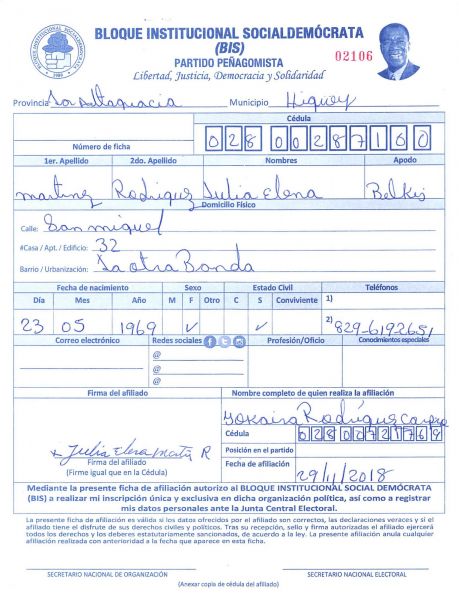 BLOQUE INSTITUCIONAL SOCIALDEMÓCRATA
(BIS)
PARTIDO PEÑAGOMISTA
Libertad, Justicia, Democracia y Solidaridad
02106
Provincia La Altagracia Municipio Higuey
Cédula
Número de ficha 028 0028716 0
1er. Apellido 2do. Apellido Nombres Apodo
Martinez Rodriguez Julia Elena Belkis
Domicilio Físico
Calle: San miguel
#Casa / Apt. / Edificio: 32
Barrio / Urbanización: La otra Banda
Fecha de nacimiento Sexo Estado Civil Teléfonos
Día Mes Año M F Otro C S Conviviente 1)
23 05 1969 ✓ ✓ 2) 829-6192651
Correo electrónico Redes sociales Profesión/Oficio Conocimientos especiales
@
@
@
Firma del afiliado Nombre completo de quien realiza la afiliación
Yokaira Rodriguez
Cédula
Julia Elena R
Posición en el partido
Firma del afiliado
(Firme igual que en la Cédula)
Fecha de afiliación 29/11/2018
Mediante la presente ficha de afiliación autorizo al BLOQUE INSTITUCIONAL SOCIAL DEMÓCRATA
(BIS) a realizar mi inscripción única y exclusiva en dicha organización política, así como a registrar
mis datos personales ante la Junta Central Electoral.
La presente ficha de afiliación es válida si los datos ofrecidos por el afiliado son correctos, las declaraciones veraces y si el
afiliado tiene el disfrute de sus derechos civiles y políticos. Tras su recepción, sello y firma autorizadas el afiliado ejercerá
todos los derechos y los deberes estatutariamente sancionados, de acuerdo a la ley. La presente afiliación anula cualquier
afiliación realizada con anterioridad a la fecha que aparece en esta ficha.
SECRETARIO NACIONAL DE ORGANIZACIÓN SECRETARIO NACIONAL ELECTORAL
(Anexar copia de cédula del afiliado)